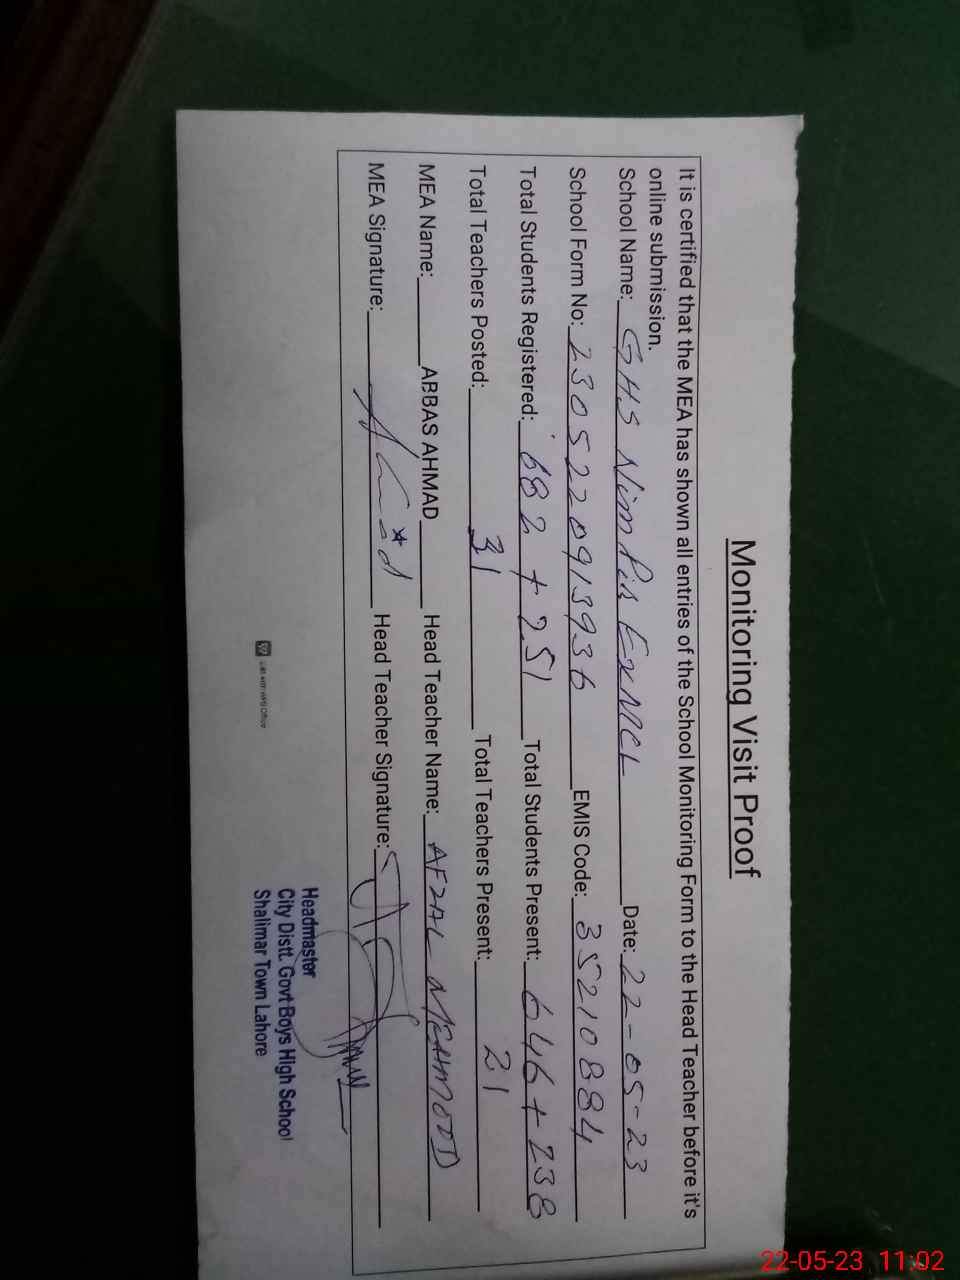 Monitoring Visit Proof
It is certified that the MEA has shown all entries of the School Monitoring Form to the Head Teacher before it's
online submission.
School Name: GHS Nim Ex MCL Date: 22-05-23
School Form No: 2305220913936 EMIS Code: 35210884
Total Students Registered: 682 + 251 Total Students Present: 646 + 238
Total Teachers Posted: 31 Total Teachers Present: 21
MEA Name: ABBAS AHMAD Head Teacher Name: AFZAL MEHMOOD
MEA Signature: Head Teacher Signature:
Headmaster
City Distt. Govt Boys High School
Shalimar Town Lahore
22-05-23 11:02